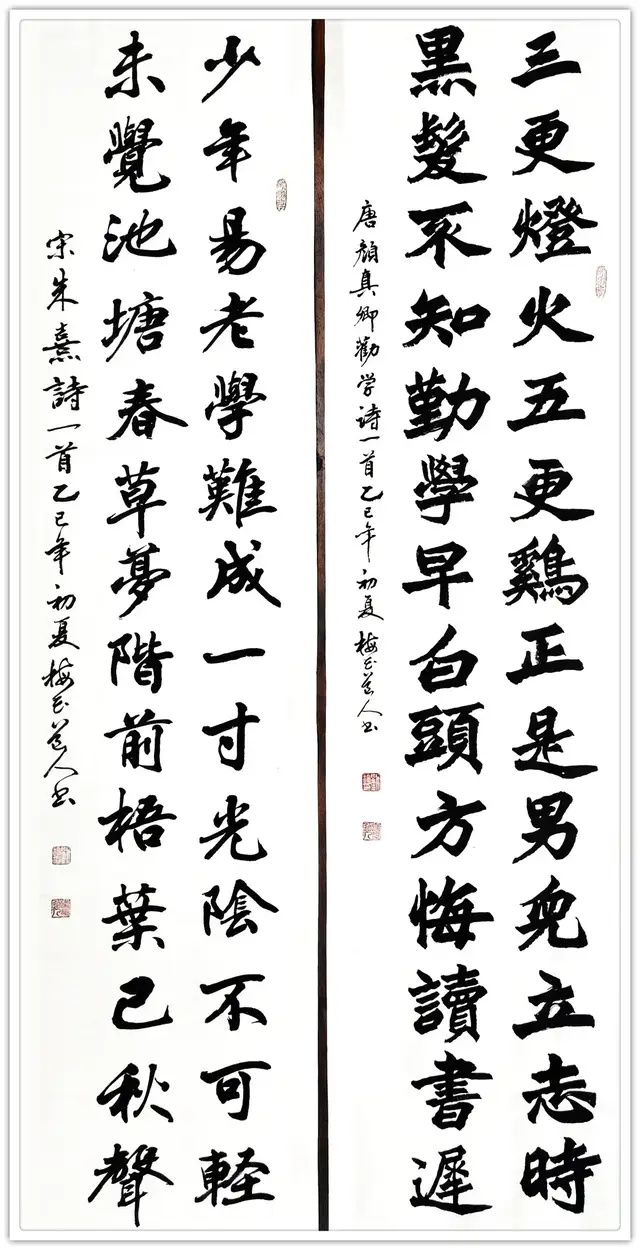 三更燈火五更鷄正是男兒立志時
黑髮不知勤學早白頭方悔讀書遲
唐顏真卿勸学诗一首乙巳年初夏梅人书
少年易老學難成一寸光陰不可軽
未覺池塘春草夢階前梧葉已秋聲
宋朱熹詩一首乙巳年初夏梅人书